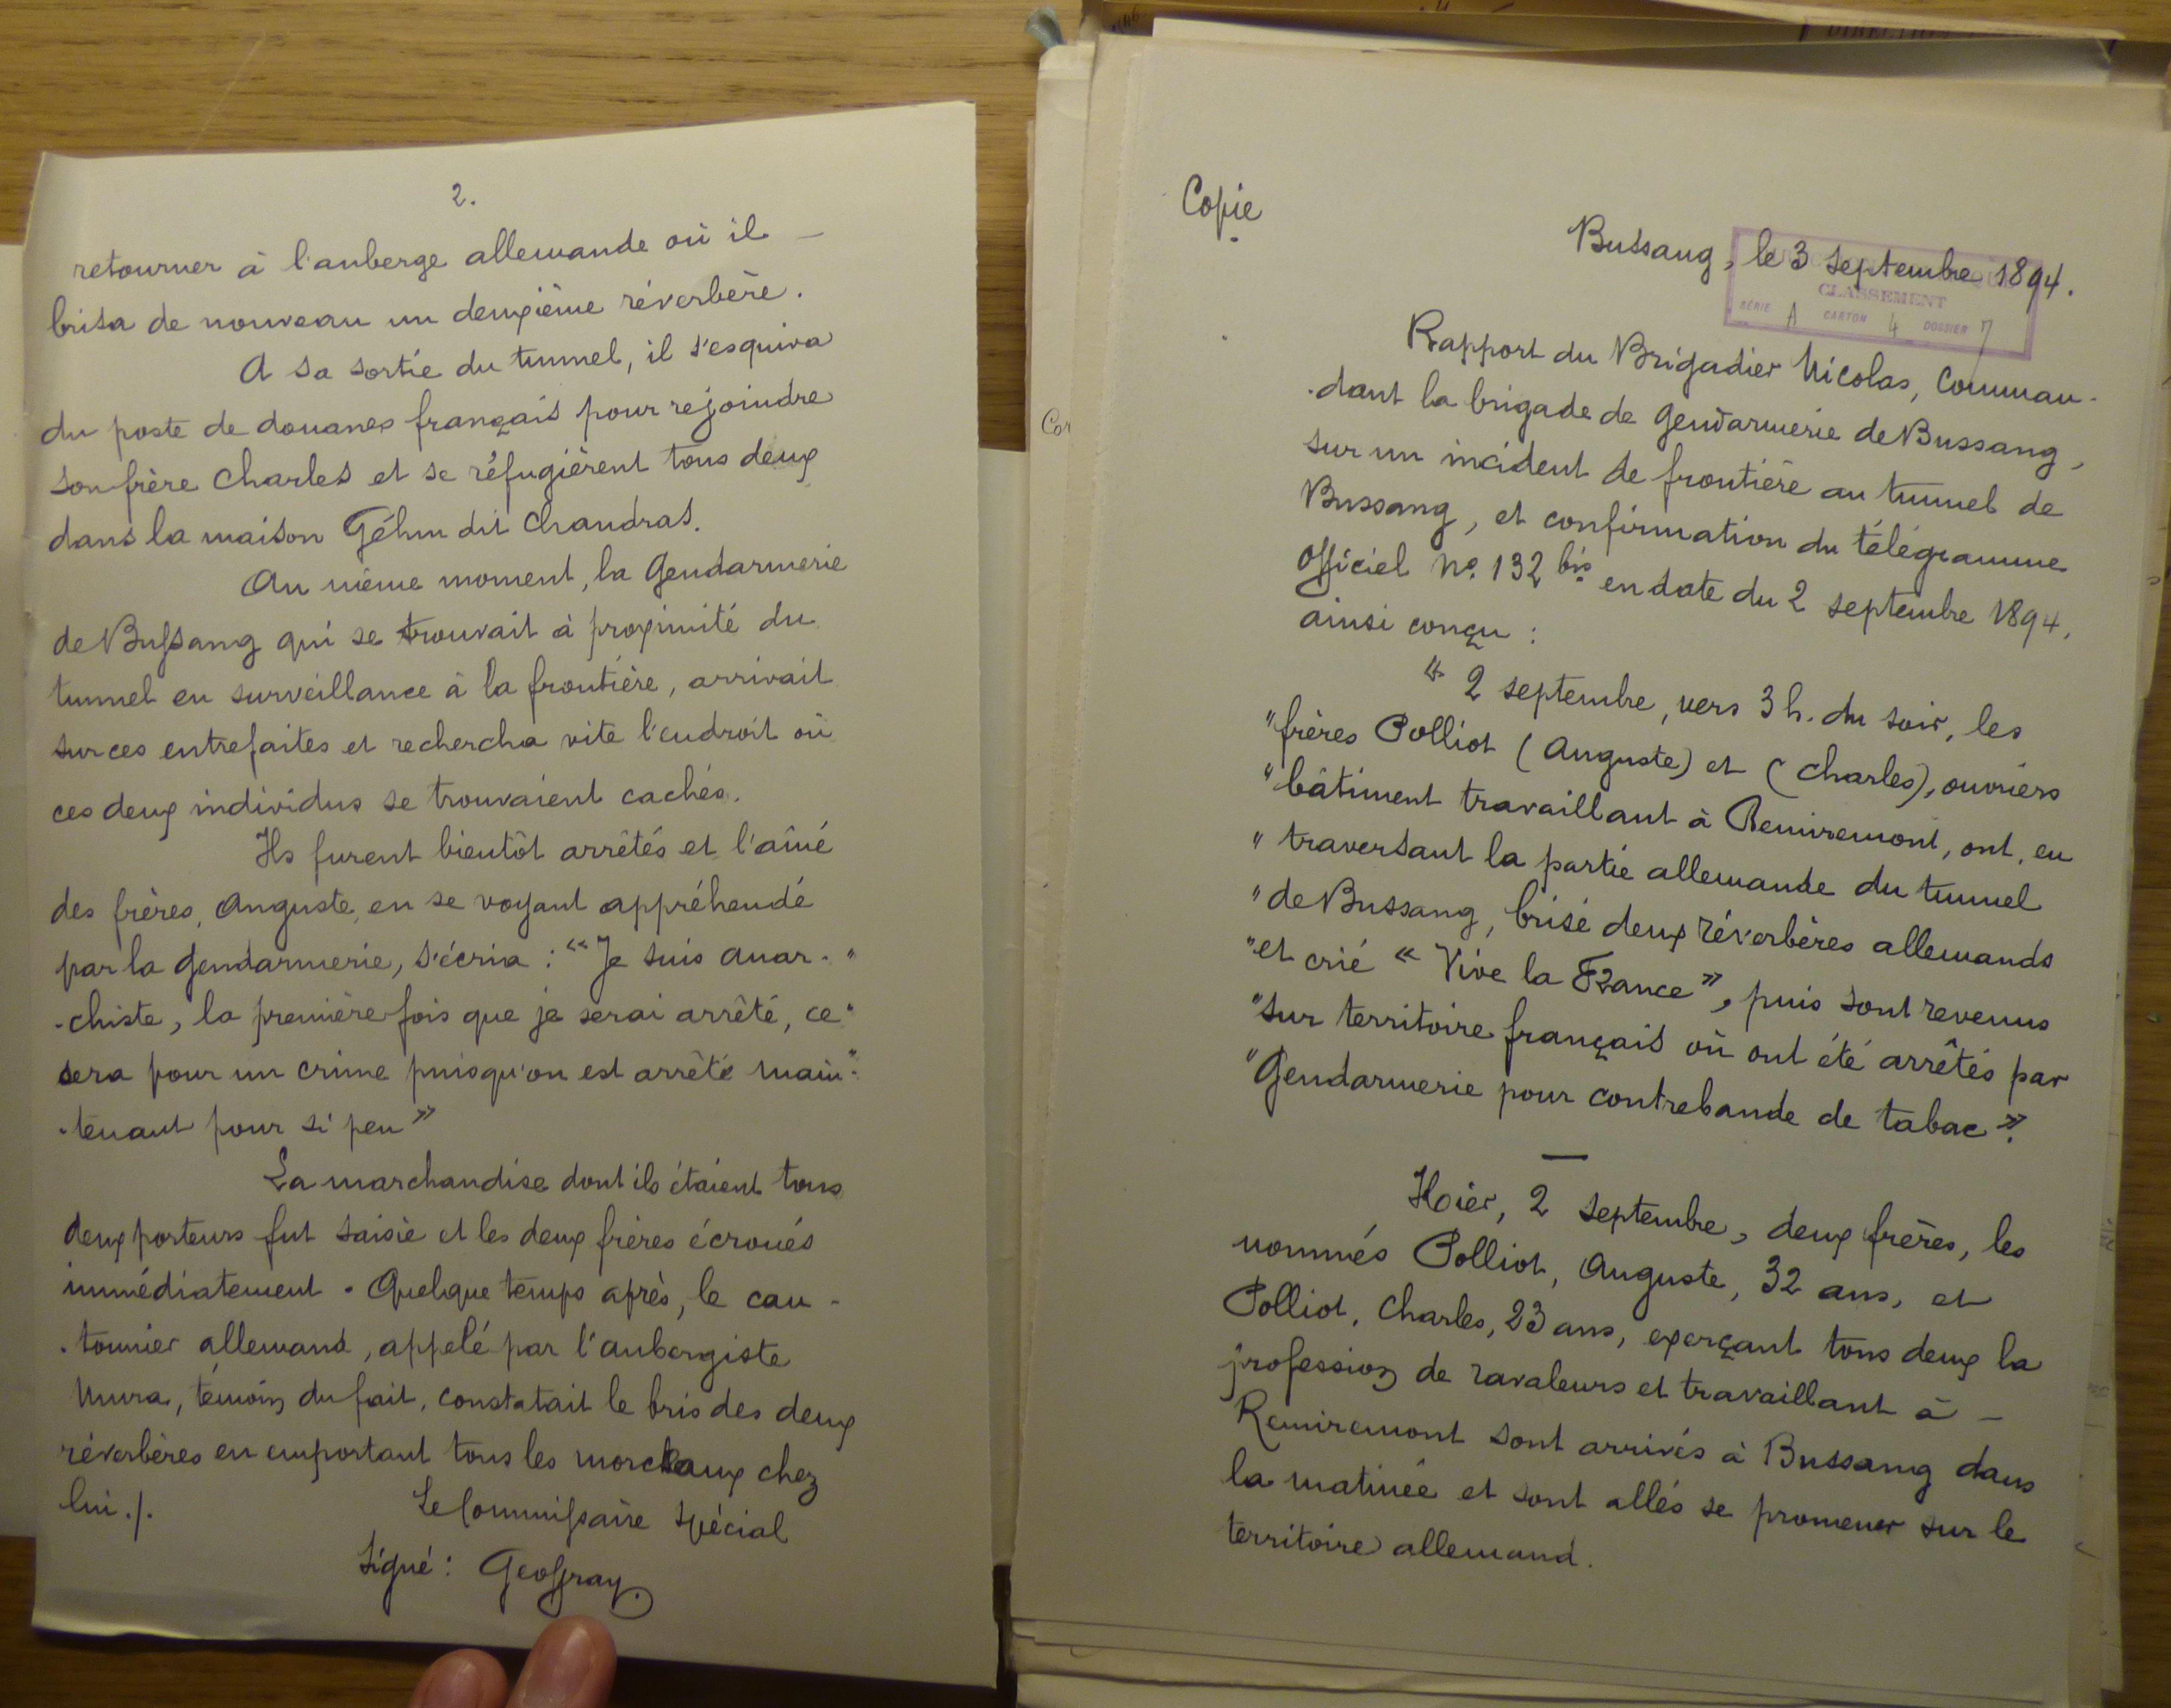 2.
retourner à l'auberge allemande où il —
brisa de nouveau un deuxième réverbère.
A sa sortie du tunnel, il s'esquiva
du poste de douanes français pour rejoindre
son frère Charles et se réfugièrent tous deux
dans la maison Géhin dit Chandras.
Au même moment, la Gendarmerie
de Bussang qui se trouvait à proximité du
tunnel en surveillance à la frontière, arrivait
sur ces entrefaites et rechercha vite l'endroit où
ces deux individus se trouvaient cachés.
Ils furent bientôt arrêtés et l'aîné
des frères, Auguste, en se voyant appréhendé
par la gendarmerie, s'écria : "Je suis anar- "
-chiste, la première fois que je serai arrêté, ce "
sera pour un crime puisqu'on est arrêté main- "
-tenant pour si peu »
La marchandise dont ils étaient tous
deux porteurs fut saisie et les deux frères écroués
immédiatement. Quelque temps après, le can-
-tonnier allemand, appelé par l'aubergiste
Mura, témoin du fait, constatait le bris des deux
réverbères en emportant tous les morceaux chez
lui./.
Le Commissaire Spécial
Signé : Geoffray.
Copie
Bussang, le 3 septembre 1894.
CLASSEMENT
SÉRIE A CARTON 4 DOSSIER 7
Rapport du Brigadier Nicolas, Comman-
-dant la brigade de Gendarmerie de Bussang,
sur un incident de frontière au tunnel de
Bussang, et confirmation du télégramme
Officiel No. 132 bis en date du 2 septembre 1894,
ainsi conçu :
« 2 septembre, vers 3 h. du soir, les
" frères Polliot (Auguste) et (Charles), ouvriers
" bâtiment travaillant à Remiremont, ont, en
" traversant la partie allemande du tunnel
" de Bussang, brisé deux réverbères allemands
" et crié « Vive la France », puis sont revenus
" sur territoire français où ont été arrêtés par
" Gendarmerie pour contrebande de tabac ».
—
Hier, 2 septembre, deux frères, les
nommés Polliot, Auguste, 32 ans, et
Polliot, Charles, 23 ans, exerçant tous deux la
profession de ravaleurs et travaillant à —
Remiremont sont arrivés à Bussang dans
la matinée et sont allés se promener sur le
territoire allemand.